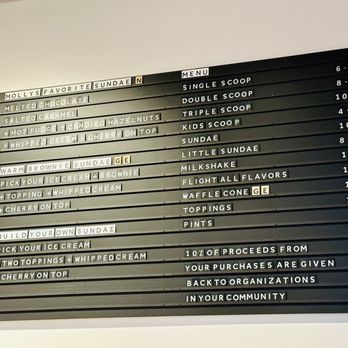 MOLLYS FAVORITE SUNDAE N
MELTED CHOCOLATE
SALTED CARAMEL
+ HOT FUDGE + CANDIED HAZELNUTS
+ WHIPPED CREAM + CHERRY ON TOP
WARM BROWNIE SUNDAE GE
PICK YOUR ICE CREAM + BROWNIE
+ TOPPING + WHIPPED CREAM
+ CHERRY ON TOP
BUILD YOUR OWN SUNDAE
PICK YOUR ICE CREAM
TWO TOPPINGS + WHIPPED CREAM
CHERRY ON TOP
MENU
SINGLE SCOOP 6
DOUBLE SCOOP 8
TRIPLE SCOOP 10
KIDS SCOOP 4
SUNDAE 10
LITTLE SUNDAE 8
MILKSHAKE
FLIGHT ALL FLAVORS
WAFFLE CONE GE
TOPPINGS
PINTS
10% OF PROCEEDS FROM
YOUR PURCHASES ARE GIVEN
BACK TO ORGANIZATIONS
IN YOUR COMMUNITY